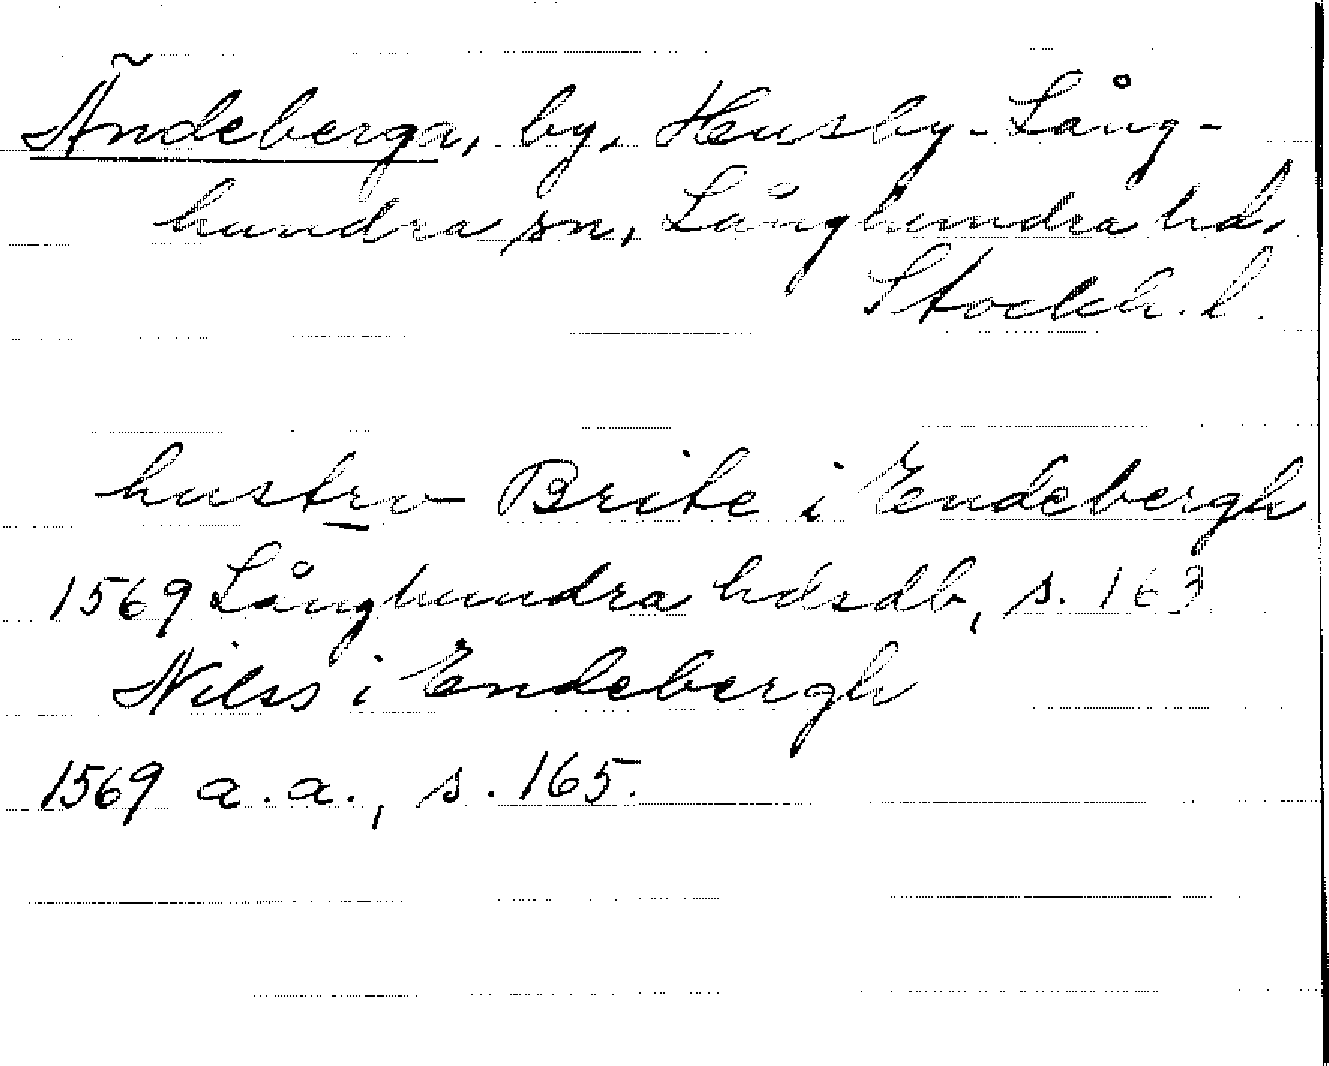 Ändeberga, by, Husby-Lång-
hundra sn, Långhundra hd,
Stockh. l.
hustro Brite i Endebergh
1569 Långhundra hdsdb, s. 163
Nilss i Endebergh
1569 a.a., s. 165.